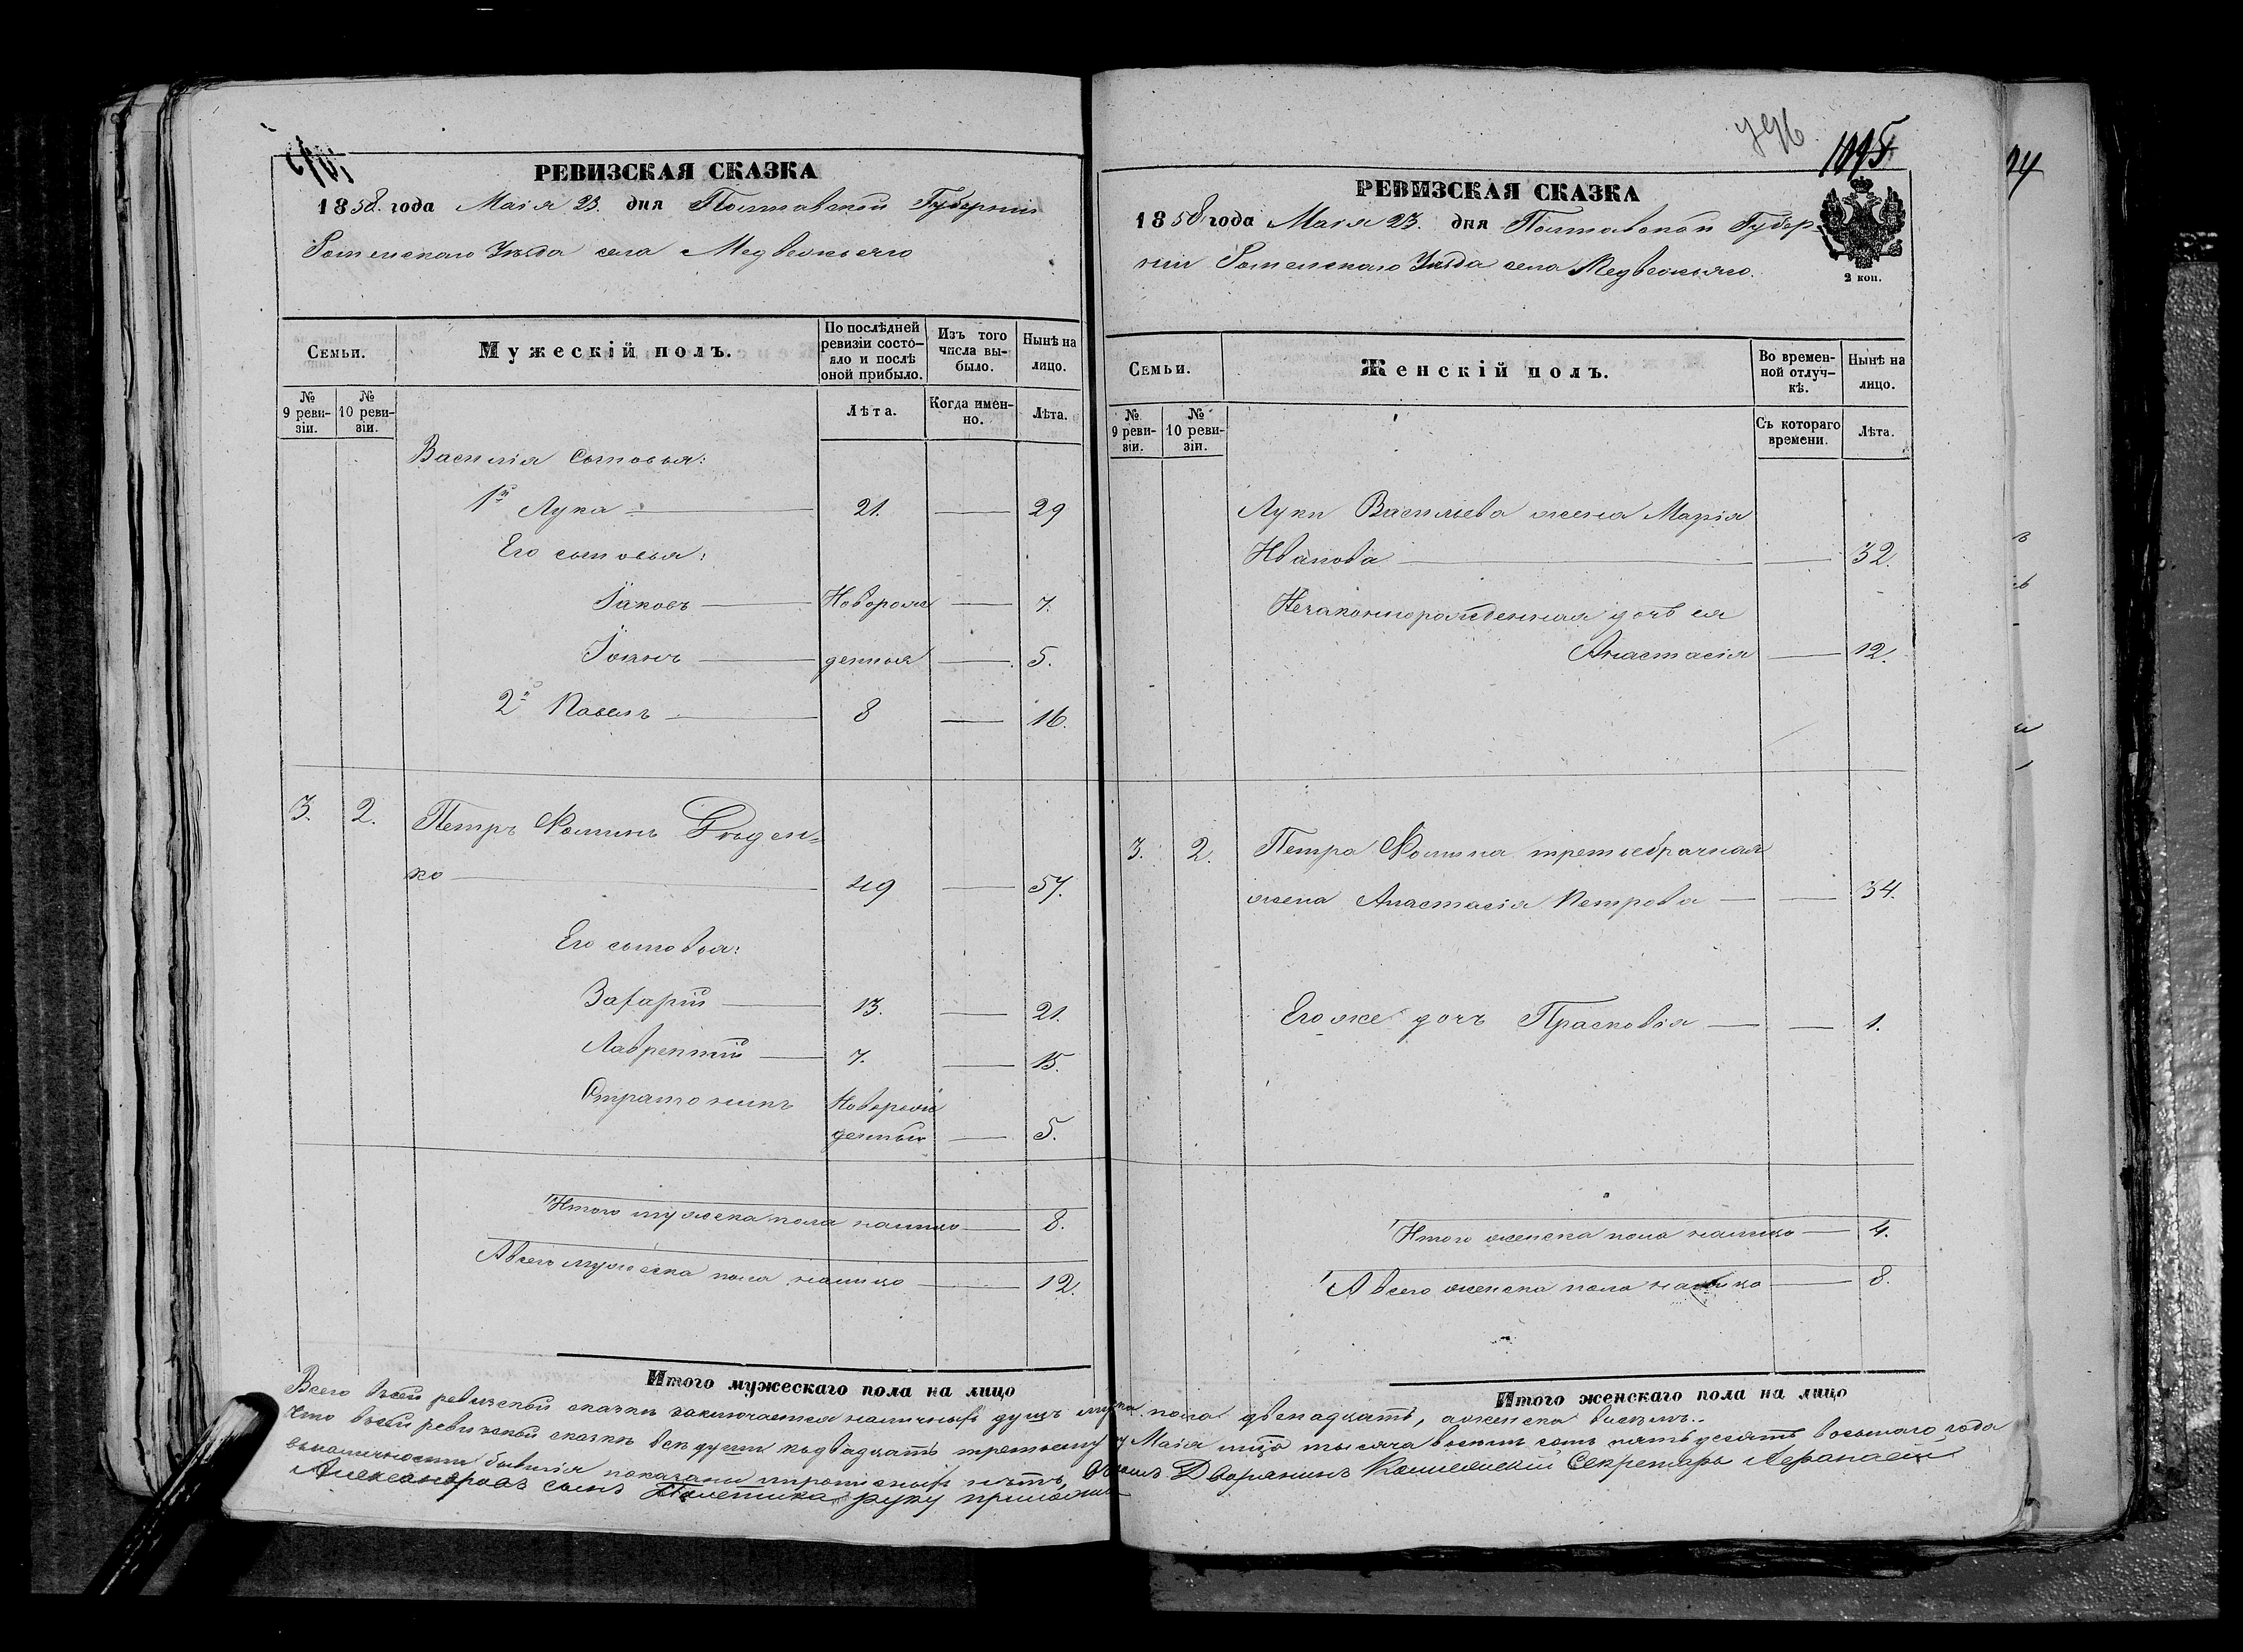 РЕВИЗСКАЯ СКАЗКА
1858. года Маія 23. дня Полтавской Губерніи
Роменскаго Уѣзда села Медвежьяго
Семьи.
Мужескій полъ.
По послѣдней ревизіи состояло и послѣ оной прибыло.
Изъ того числа выбыло.
Нынѣ на лицо.
№ 9 ревизіи.
№ 10 ревизіи.
Лѣта.
Когда именно.
Лѣта.
Василія сыновья:
1й Лука — 21. — 29
Его сыновья:
Іаковъ — Новорож — 7.
Іоаннъ — денныя — 5.
2й Павелъ — 8 — 16.
3. 2. Петръ Фоминъ Дѣден=
ко — 49 — 57.
Его сыновья:
Захарій — 13. — 21.
Лаврентій — 7. — 15.
Стратоникъ Новорож
денный — 5.
Итого мужеска пола налицо — 8.
А всего мужеска пола налицо — 12.
Итого мужескаго пола на лицо
796
1095
РЕВИЗСКАЯ СКАЗКА
1858 года Маія 23. дня Полтавской Губер
ніи Роменскаго Уѣзда села Медвежьяго.
2 коп.
Семьи.
Женскій полъ.
Во временной отлучкѣ.
Нынѣ на лицо.
№ 9 ревизіи.
№ 10 ревизіи.
Съ котораго времени.
Лѣта.
Луки Васильева жена Марія
Иванова — — 32.
Незаконнорожденная дочь ея
Анастасія — 12.
3. 2. Петра Фомина третьебрачная
жена Анастасія Петрова — — 34.
Его же дочь Прасковія — — 1.
Итого женска пола налицо — 4.
А всего женска пола налицо — 8.
Итого женскаго пола на лицо
Всего въ сей ревизской сказкѣ заключается наличныхъ душъ мужска пола двенадцать, а женска восемь..
Что въ сей ревизской сказкѣ всѣ души къ двадцать третьему ч. Маія тысяча восемь сотъ пятьдесятъ восьмаго года
въ наличности бывшія показаны и прописныхъ нѣтъ, въ томъ Дворянинъ Коллежскій Секретарь
Александровъ сынъ Полетика руку приложилъ